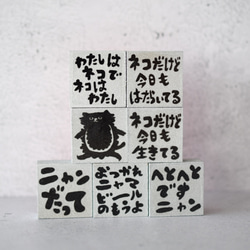 わたしは
ネコで
ネコは
わたし
ネコだけど
今日も
はたらいてる
ネコだけど
今日も
生きてる
ニャン
だって
おつかれ
ニャマ
ビール
のもうよ
へとへと
です
ニャン